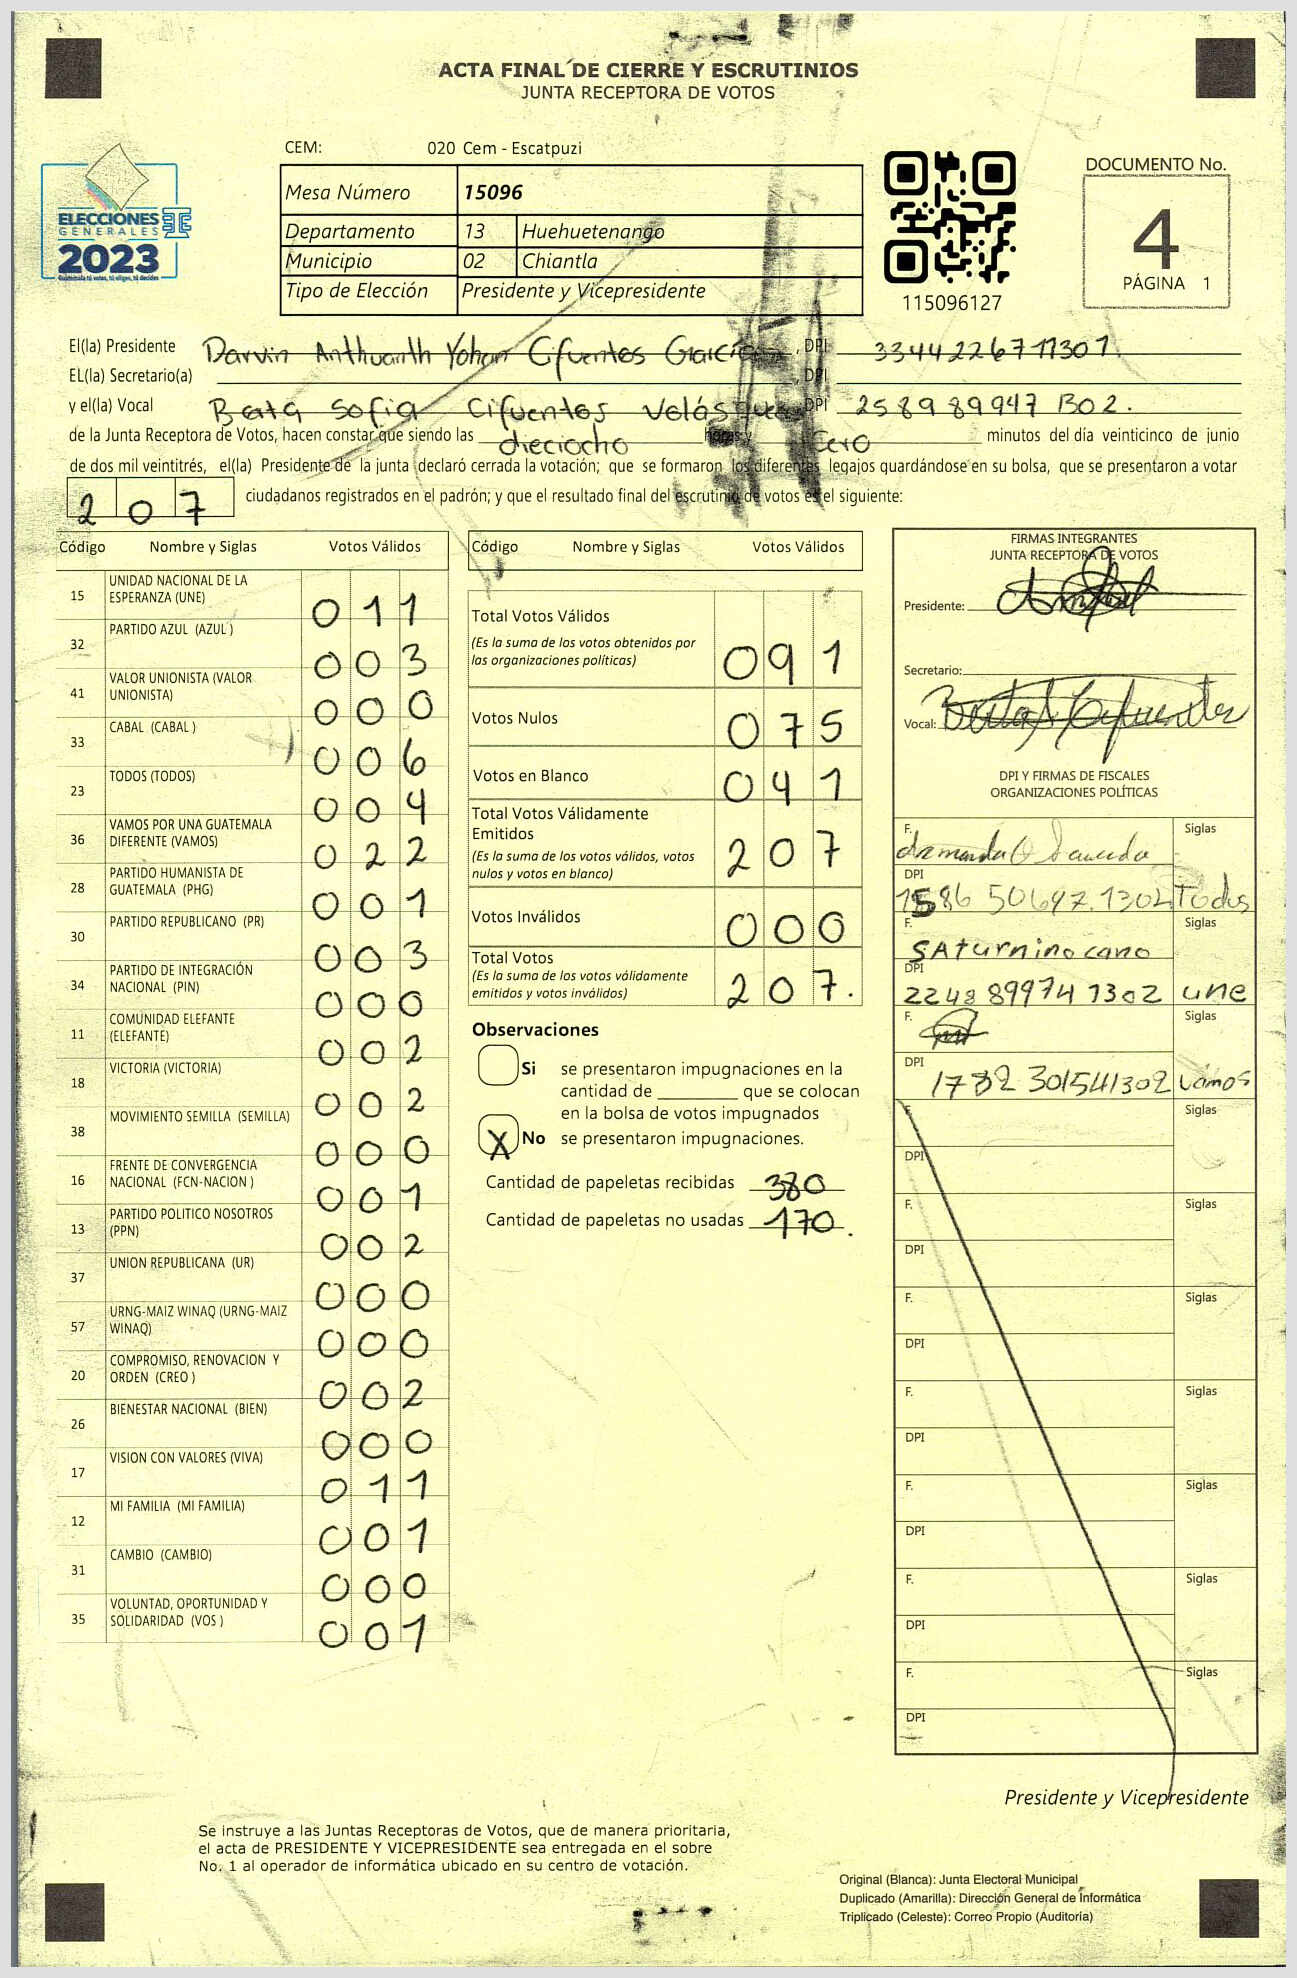 ACTA FINAL DE CIERRE Y ESCRUTINIOS
JUNTA RECEPTORA DE VOTOS
CEM: 020 Cem - Escatpuzi
Mesa Número 15096
Departamento 13 Huehuetenango
Municipio 02 Chiantla
Tipo de Elección Presidente y Vicepresidente
ELECCIONES
GENERALES
2023
115096127
DOCUMENTO No.
4
PÁGINA 1
El(la) Presidente Darvin Anthuanth Yohan Cifuentes García, DPI 3344226711301
EL(la) Secretario(a) , DPI
y el(la) Vocal Berta Sofia Cifuentes Velásquez DPI 258989947 1302.
de la Junta Receptora de Votos, hacen constar que siendo las dieciocho horas y Cero minutos del día veinticinco de junio
de dos mil veintitrés, el(la) Presidente de la junta declaró cerrada la votación; que se formaron los diferentes legajos quardándose en su bolsa, que se presentaron a votar
207 ciudadanos registrados en el padrón; y que el resultado final del escrutinio de votos es el siguiente:
Código Nombre y Siglas Votos Válidos
15 UNIDAD NACIONAL DE LA ESPERANZA (UNE) 011
32 PARTIDO AZUL (AZUL ) 003
41 VALOR UNIONISTA (VALOR UNIONISTA) 000
33 CABAL (CABAL ) 006
23 TODOS (TODOS) 004
36 VAMOS POR UNA GUATEMALA DIFERENTE (VAMOS) 022
28 PARTIDO HUMANISTA DE GUATEMALA (PHG) 001
30 PARTIDO REPUBLICANO (PR) 003
34 PARTIDO DE INTEGRACIÓN NACIONAL (PIN) 000
11 COMUNIDAD ELEFANTE (ELEFANTE) 002
18 VICTORIA (VICTORIA) 002
38 MOVIMIENTO SEMILLA (SEMILLA) 000
16 FRENTE DE CONVERGENCIA NACIONAL (FCN-NACION ) 001
13 PARTIDO POLITICO NOSOTROS (PPN) 002
37 UNION REPUBLICANA (UR) 000
57 URNG-MAIZ WINAQ (URNG-MAIZ WINAQ) 000
20 COMPROMISO, RENOVACION Y ORDEN (CREO ) 002
26 BIENESTAR NACIONAL (BIEN) 000
17 VISION CON VALORES (VIVA) 011
12 MI FAMILIA (MI FAMILIA) 001
31 CAMBIO (CAMBIO) 000
35 VOLUNTAD, OPORTUNIDAD Y SOLIDARIDAD (VOS ) 001
Código Nombre y Siglas Votos Válidos
Total Votos Válidos
(Es la suma de los votos obtenidos por
las organizaciones políticas) 091
Votos Nulos 075
Votos en Blanco 041
Total Votos Válidamente
Emitidos
(Es la suma de los votos válidos, votos
nulos y votos en blanco) 207
Votos Inválidos 000
Total Votos
(Es la suma de los votos válidamente
emitidos y votos inválidos) 207.
Observaciones
Si se presentaron impugnaciones en la
cantidad de ________ que se colocan
en la bolsa de votos impugnados
X No se presentaron impugnaciones.
Cantidad de papeletas recibidas 380
Cantidad de papeletas no usadas 170.
FIRMAS INTEGRANTES
JUNTA RECEPTORA DE VOTOS
Presidente:
Secretario:
Vocal: Berta S Cifuentes
DPI Y FIRMAS DE FISCALES
ORGANIZACIONES POLÍTICAS
F. Siglas
DPI
1586 50697.1302 Todos
F. Siglas
SAturnino cano
DPI
2248 89974 1302 une
F. Siglas
DPI
1782 301541302 Vamos
F. Siglas
DPI
F. Siglas
DPI
F. Siglas
DPI
F. Siglas
DPI
F. Siglas
DPI
F. Siglas
DPI
F. Siglas
DPI
Presidente y Vicepresidente
Se instruye a las Juntas Receptoras de Votos, que de manera prioritaria,
el acta de PRESIDENTE Y VICEPRESIDENTE sea entregada en el sobre
No. 1 al operador de informática ubicado en su centro de votación.
Original (Blanca): Junta Electoral Municipal
Duplicado (Amarilla): Dirección General de Informática
Triplicado (Celeste): Correo Propio (Auditoría)